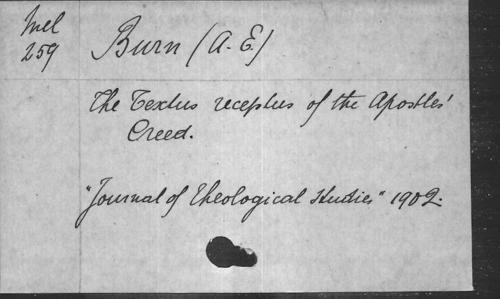 Mel
259
Burn (A. E.)
The Textus receptus of the Apostles'
Creed.
"Journal of Theological Studies" 1902.